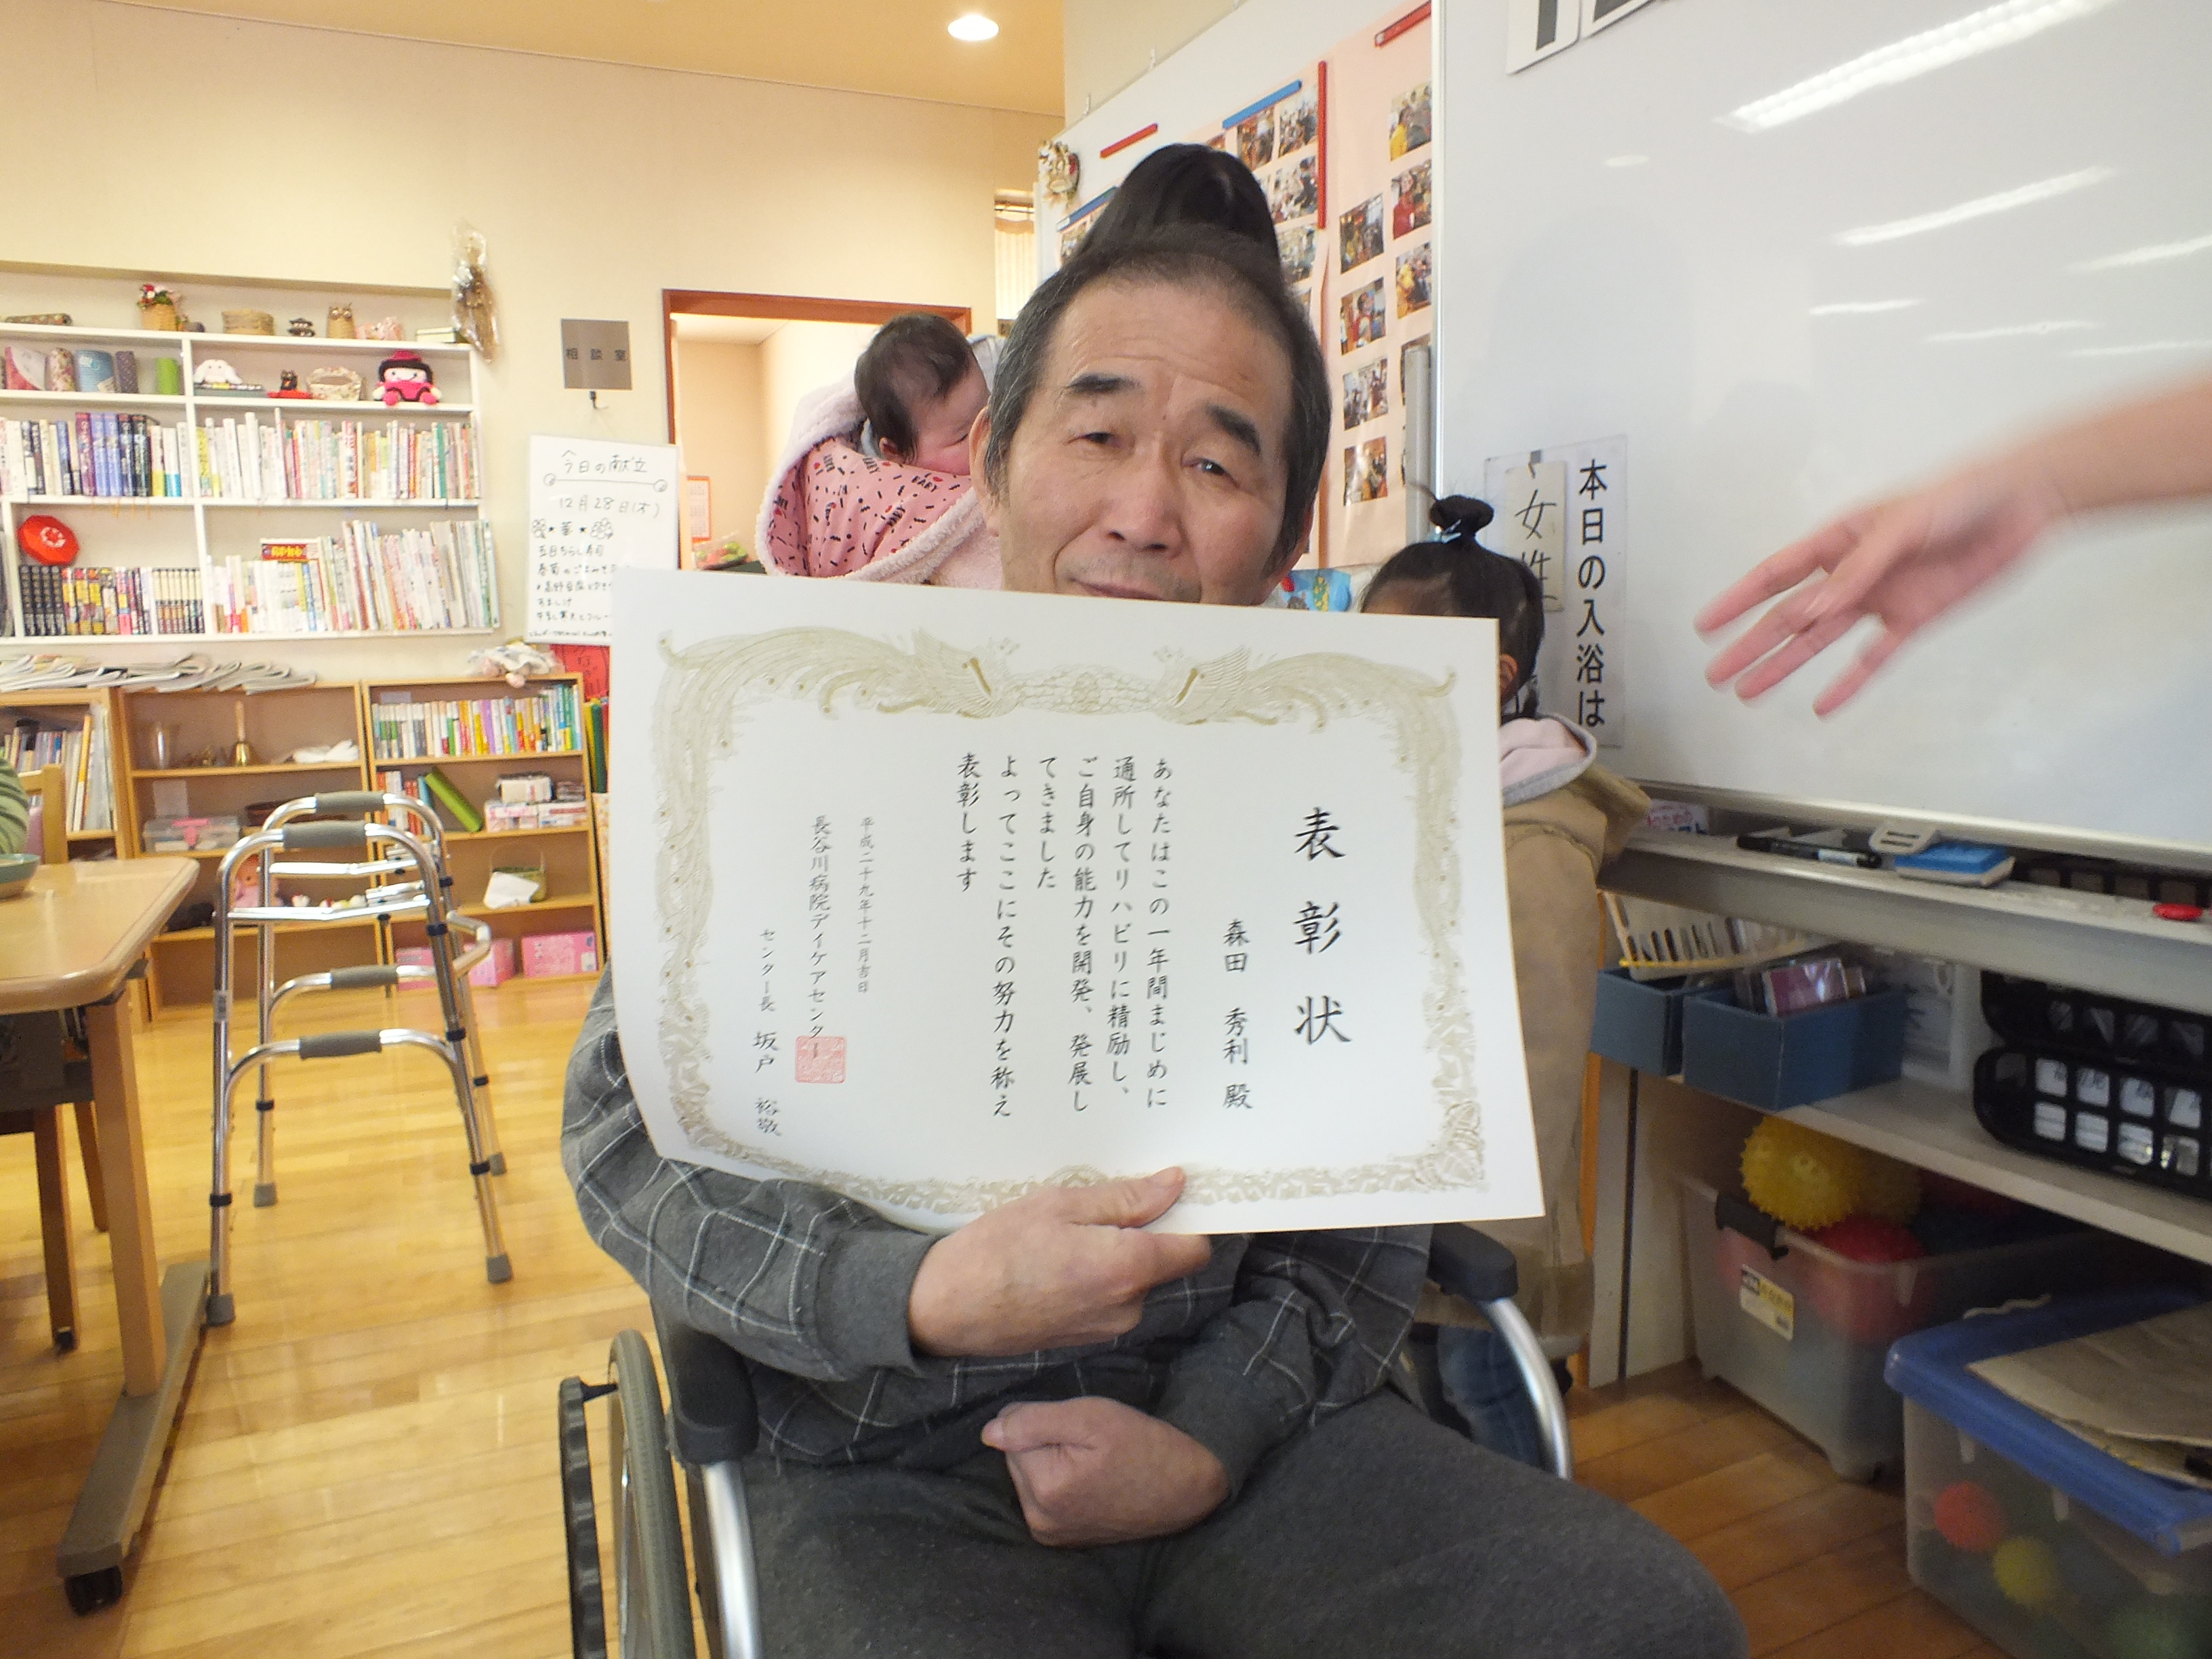 表彰状
森田 秀利 殿
あなたはこの一年間まじめに
通所してリハビリに精励し、
ご自身の能力を開発、発展し
てきました
よってここにその努力を称え
表彰します
平成二十九年十二月吉日
長谷川病院デイケアセンター
センター長 坂戸 裕敬
相談室
今日の献立
12月28日(木)
五目ちらし寿司
本日の入浴は
女性
BABY